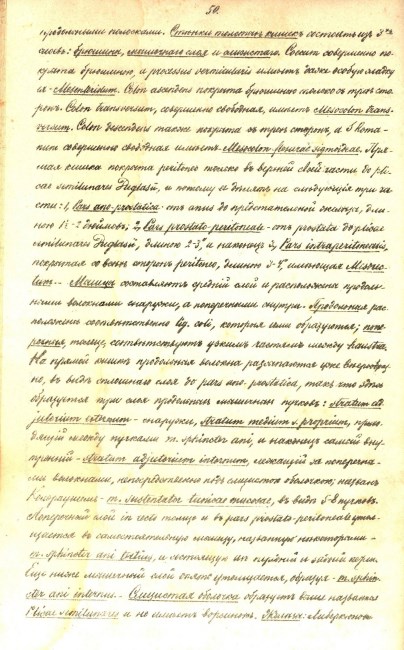 50.
продольными полосками. Стѣнки толстыхъ кишекъ состоятъ изъ 3хъ
слоевъ: брюшины, мышечнаго слоя и слизистаго. Coecum совершенно по-
крыта брюшиною, и processus vermicularis имѣетъ даже особую складку
ея - Mesenteridum. Colon ascendens покрыта брюшиною только съ трехъ сто-
ронъ. Colon transversum, совершенно свободная, имѣетъ Mesocolon trans-
versum. Colon descendens также покрыта съ трехъ сторонъ, а S Roma-
num совершенно свободная имѣетъ Mesocolon flexurae sigmoideae. Пря-
мая кишка покрыта peritoneo только въ верхней своей части до pli-
cae semilunares Duglasii, и потому и дѣлятъ на слѣдующія три ча-
сти: 1, Pars ano-prostatica - отъ anus до предстательной железы, дли-
ною 1½-2 дюймовъ; 2, Pars prostato-peritoneale - отъ prostata до plicae
semilunares Duglasii, длиною 2-3, и наконецъ 3, Pars intraperitonealis,
покрытая со всѣхъ сторонъ peritoneo, длиною 3-4, имѣющая Mesorec-
tum. - Мышцы составляютъ средній слой и расположены продоль-
ными волокнами снаружи, а поперечными внутри. Продольныя рас-
положены соотвѣтственно lig. coli, которыя ими образуются; попе-
речныя, тоньше, соотвѣтствуютъ узкимъ частямъ между haustra.
На прямой кишкѣ продольныя волокна разлагаются уже
но, въ видѣ сплошнаго слоя до pars ano-prostatica, такъ что здѣсь
образуется три слоя продольныхъ мышечныхъ пучковъ: Stratum ad-
jutorium externum - снаружи, Stratum medium s. proprium, прохо-
дящій между пучками m. sphincter ani, и наконецъ самый вну-
тренній - Stratum adjutorium internum, лежащій за попереч-
ными волокнами, непосредственно подъ слизистой оболочкой; названъ
m. sustentator tunicae mucosae, въ видѣ 5-8 пучковъ.
Поперечный слой in recto толще и въ pars prostato-peritoneale утолщ-
ается въ самостоятельную мышцу, названную некоторыми -
m. sphincter ani tertius, и состоящую изъ
Еще ниже мышечный слой опять утолщается, образуя - m. sphin-
cter ani internus. - Слизистая оболочка образуетъ выше названныя
Plicae semilunares и не имѣетъ ворсинокъ.